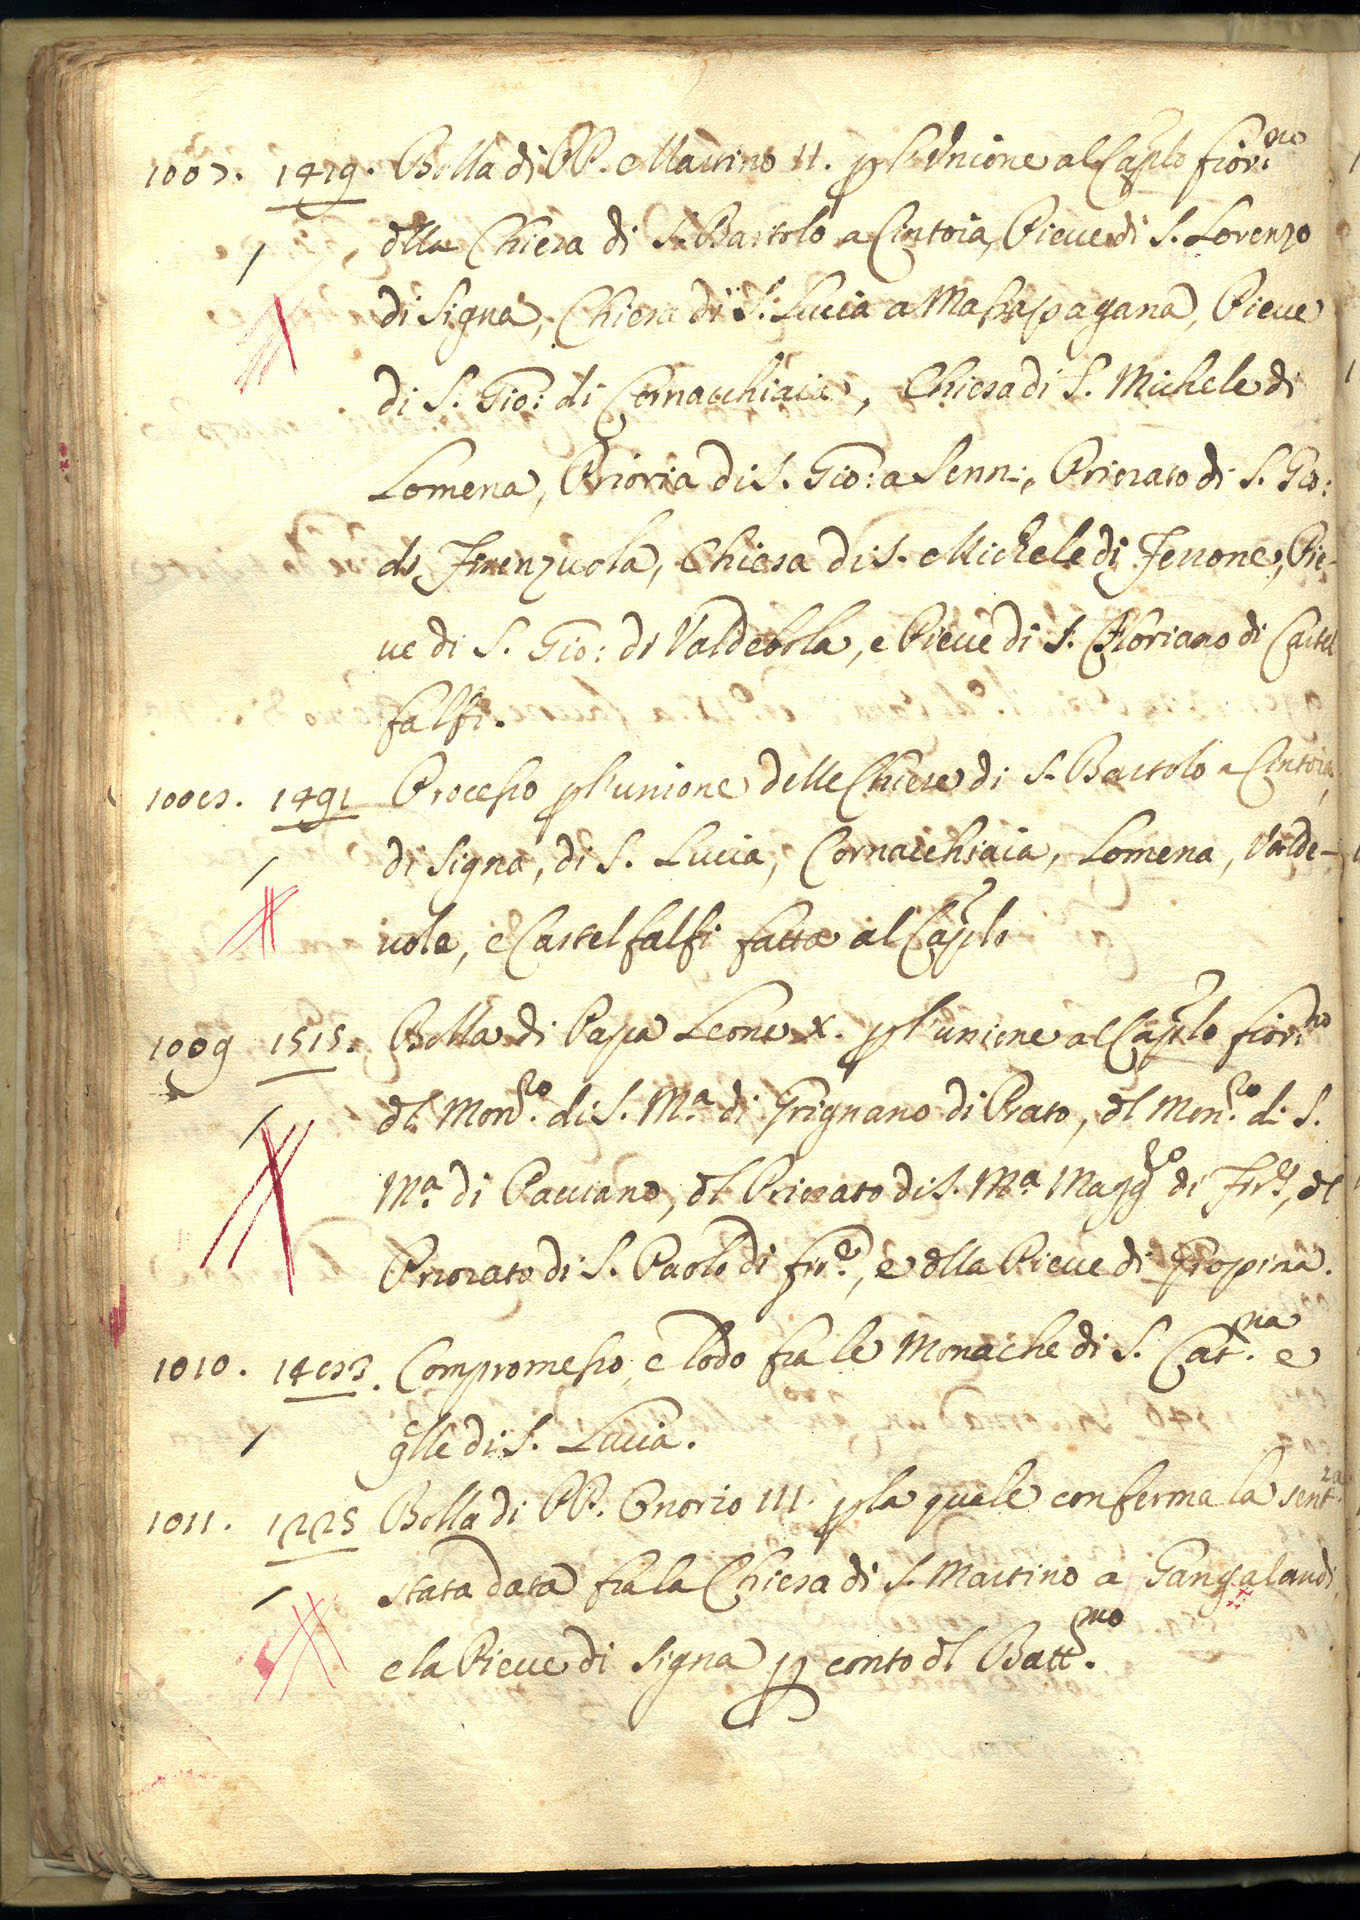 1007. 1429. Bolla di PP. Martino II. p l'Unione al Caplo fior.no
dlla Chiesa di S. Bartolo a Cintoia, Pieve di S. Lorenzo
di Signa, Chiesa di S. Lucia a Massapagana, Pieve
di S. Gio: di Cornacchiaia, Chiesa di S. Michele di
Lomena, Prioria di S. Gio: a Senni, Priorato di S. Gio:
di Firenzuola, Chiesa di S. Michele di Ferrone, Pie-
ve di S. Gio: di Valdebola, e Pieve di S. Floriano di Castel
falfi.
1008. 1491 Processo p l'unione delle Chiese di S. Bartolo a Cintoia,
di Signa, di S. Lucia, Cornacchiaia, Lomena, Valde-
vole, e Castelfalfi fatta al Caplo
1009 1515. Bolla di Papa Leone X. p l'unione al Caplo fior.no
dl Mon.ro di S. M.a di Grignano di Prato, dl Mon.ro di S.
M.a di Pacciano, dl Priorato di S. M.a Magg.re di Fir.e, dl
Priorato di S. Paolo di fir.e, e dlla Pieve di Gropina.
1010. 1483. Compromesso, e lodo fra le Monache di S. Cat.na e
qlle di S. Lucia.
1011. 1225 Bolla di PP. Onorio III. p la quale conferma la sent.za
stata data fra la Chiesa di S. Martino a Gangalandi,
e la Pieve di Signa p conto dl Batt.mo